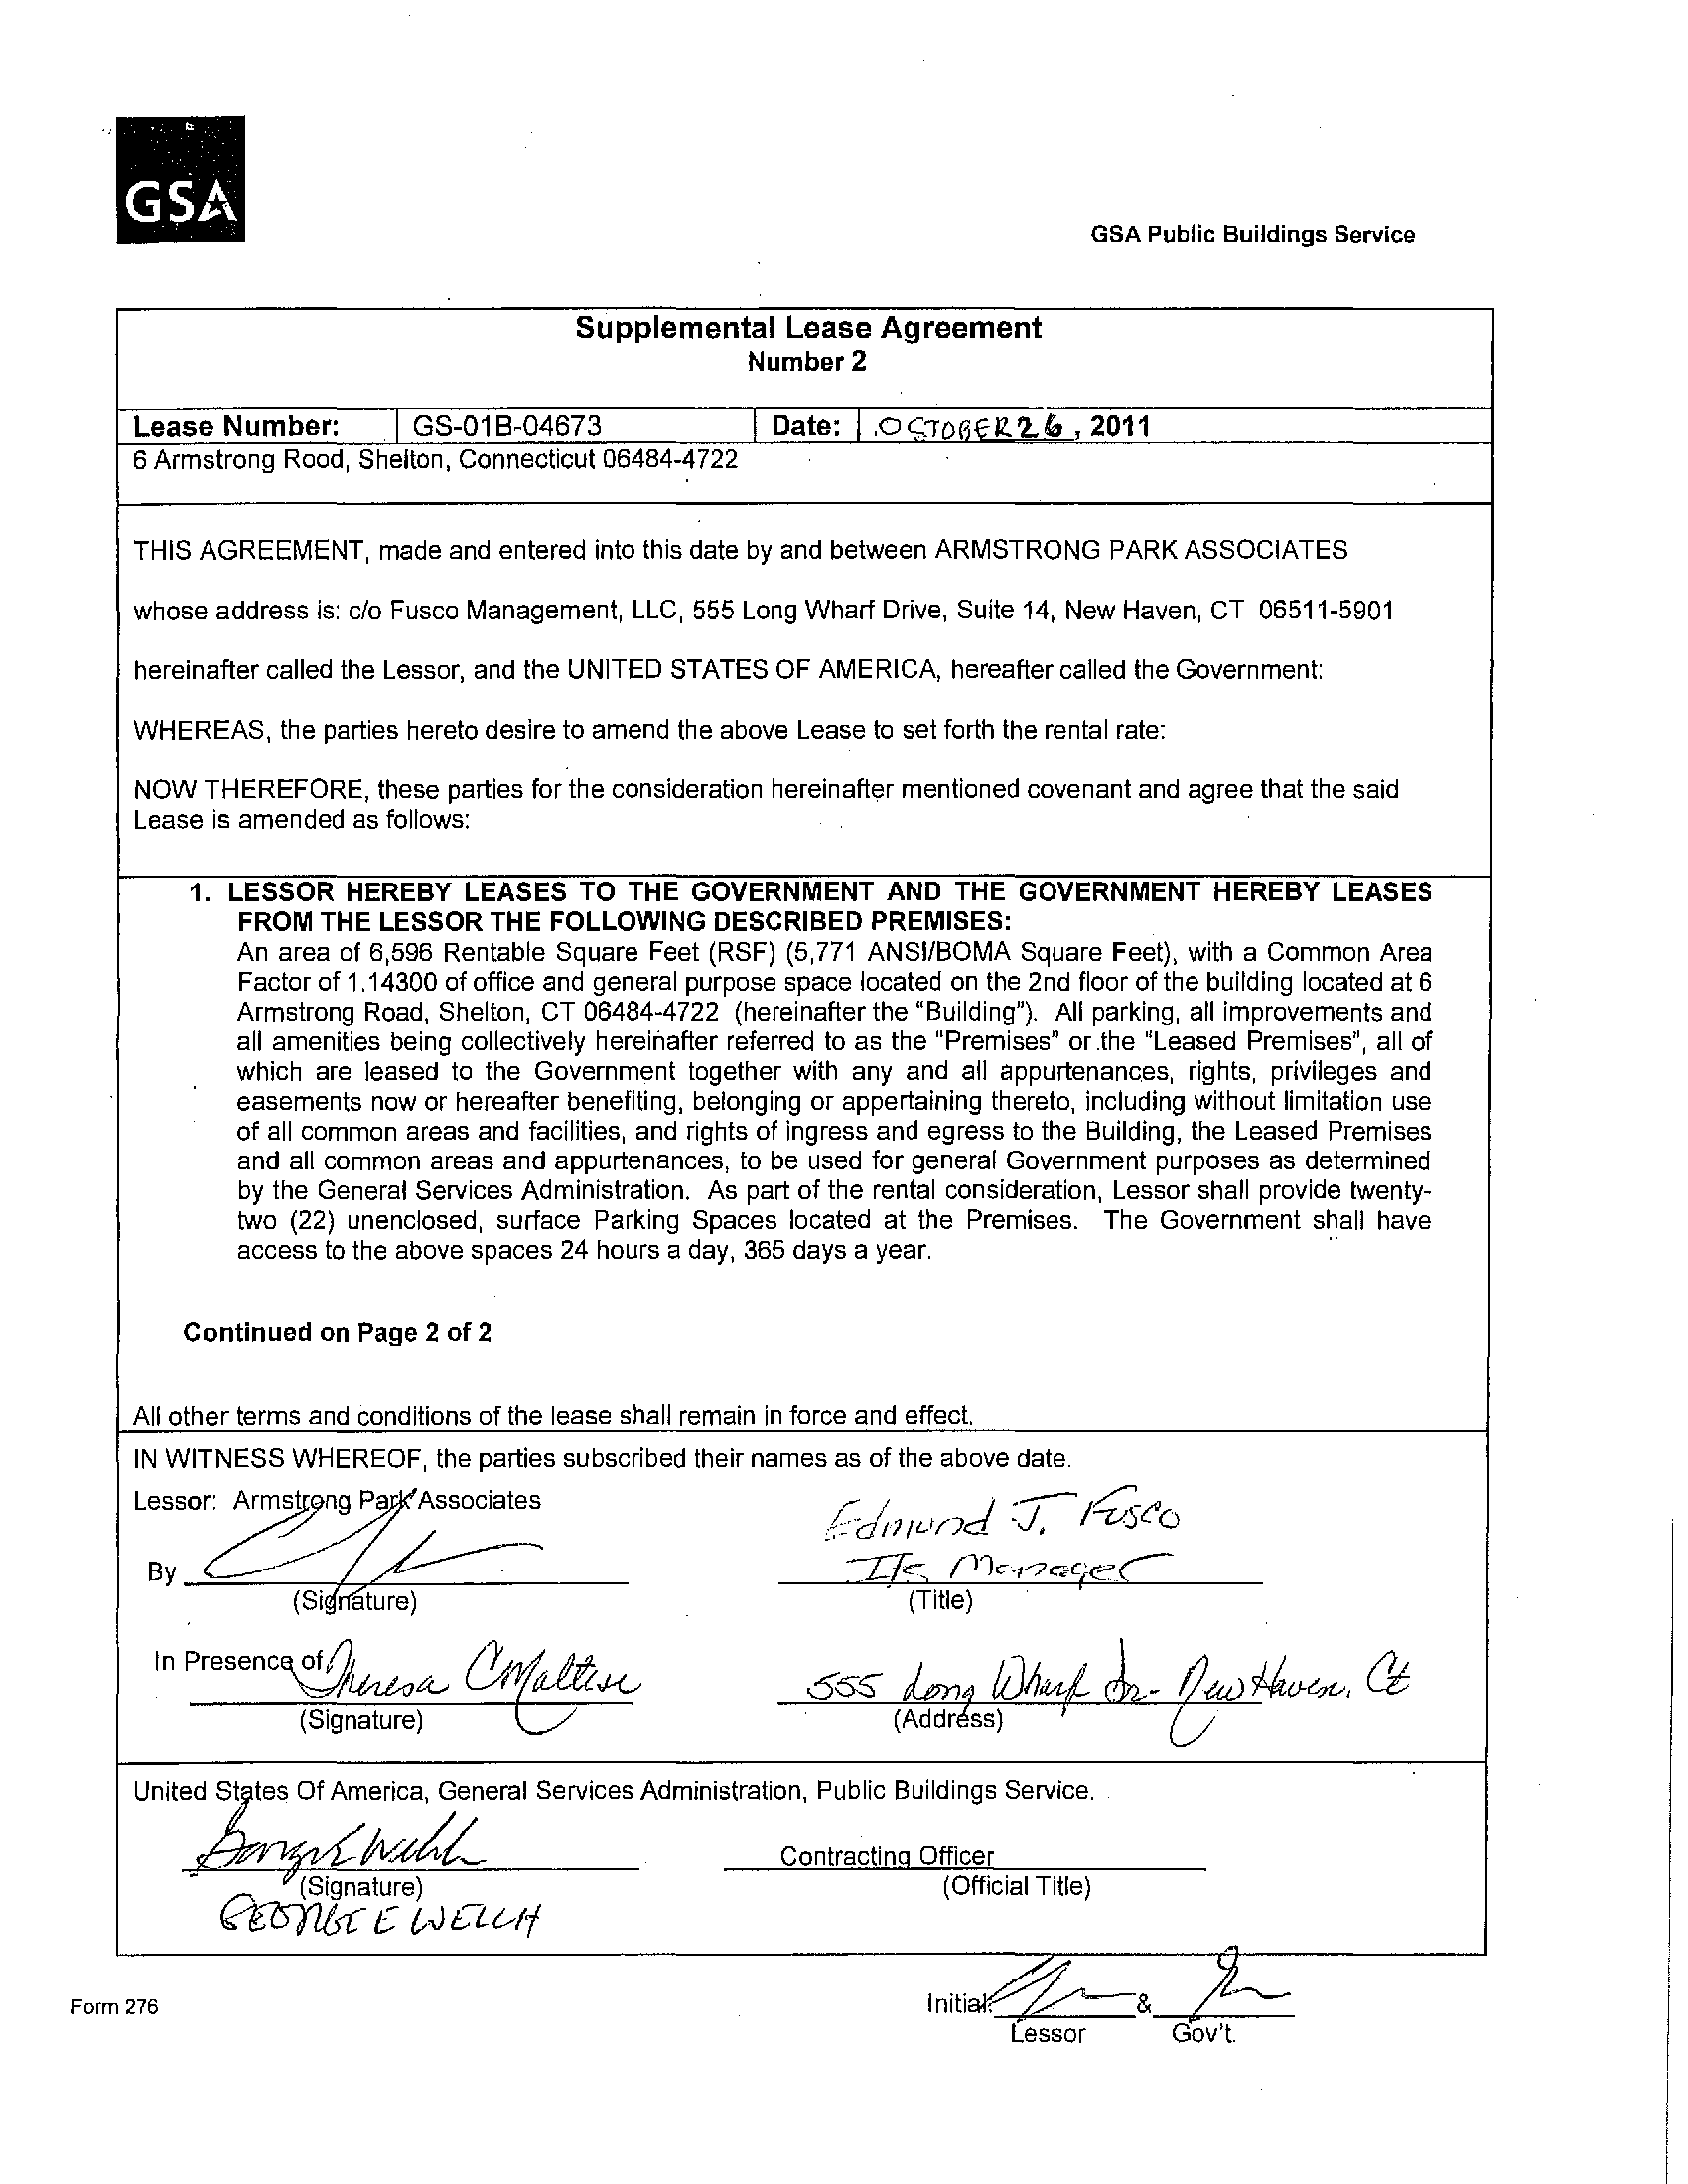 GSA
GSA Public Buildings Service
Supplemental Lease Agreement
Number 2
Lease Number: GS-01B-04673 Date: OCTOBER 26, 2011
6 Armstrong Rood, Shelton, Connecticut 06484-4722
THIS AGREEMENT, made and entered into this date by and between ARMSTRONG PARK ASSOCIATES
whose address is: c/o Fusco Management, LLC, 555 Long Wharf Drive, Suite 14, New Haven, CT 06511-5901
hereinafter called the Lessor, and the UNITED STATES OF AMERICA, hereafter called the Government:
WHEREAS, the parties hereto desire to amend the above Lease to set forth the rental rate:
NOW THEREFORE, these parties for the consideration hereinafter mentioned covenant and agree that the said
Lease is amended as follows:
1. LESSOR HEREBY LEASES TO THE GOVERNMENT AND THE GOVERNMENT HEREBY LEASES
FROM THE LESSOR THE FOLLOWING DESCRIBED PREMISES:
An area of 6,596 Rentable Square Feet (RSF) (5,771 ANSI/BOMA Square Feet), with a Common Area
Factor of 1.14300 of office and general purpose space located on the 2nd floor of the building located at 6
Armstrong Road, Shelton, CT 06484-4722 (hereinafter the "Building"). All parking, all improvements and
all amenities being collectively hereinafter referred to as the "Premises" or the "Leased Premises", all of
which are leased to the Government together with any and all appurtenances, rights, privileges and
easements now or hereafter benefiting, belonging or appertaining thereto, including without limitation use
of all common areas and facilities, and rights of ingress and egress to the Building, the Leased Premises
and all common areas and appurtenances, to be used for general Government purposes as determined
by the General Services Administration. As part of the rental consideration, Lessor shall provide twenty-
two (22) unenclosed, surface Parking Spaces located at the Premises. The Government shall have
access to the above spaces 24 hours a day, 365 days a year.
Continued on Page 2 of 2
All other terms and conditions of the lease shall remain in force and effect.
IN WITNESS WHEREOF, the parties subscribed their names as of the above date.
Lessor: Armstrong Park Associates
Edmund J. Fusco
By Its Manager
(Signature) (Title)
In Presence of Theresa C Maltese 555 Long Wharf Dr- New Haven, Ct
(Signature) (Address)
United States Of America, General Services Administration, Public Buildings Service.
George E Welch Contracting Officer
(Signature) (Official Title)
GEORGE E WELCH
Form 276 Initial: &
Lessor Gov't.